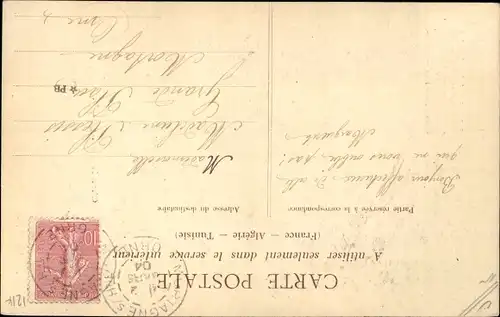 CARTE POSTALE
A utiliser seulement dans le service intérieur
(France — Algérie — Tunisie)
Partie réservée à la correspondance
Adresse du destinataire
Bonjour affectueux de celle
qui ne vous oublie pas!
Marguerite
Mademoiselle
Madeleine
Grande Place
Mortagne
Orne
★ PB
10
ORNE
04